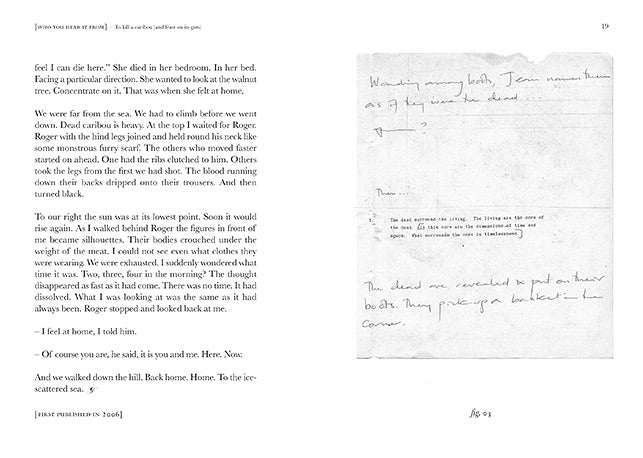 [WHO YOU HEAR IT FROM] — To kill a caribou (and feast on its guts)
feel I can die here.” She died in her bedroom. In her bed.
Facing a particular direction. She wanted to look at the walnut
tree. Concentrate on it. That was when she felt at home.
We were far from the sea. We had to climb before we went
down. Dead caribou is heavy. At the top I waited for Roger.
Roger with the hind legs joined and held round his neck like
some monstrous furry scarf. The others who moved faster
started on ahead. One had the ribs clutched to him. Others
took the legs from the first we had shot. The blood running
down their backs dripped onto their trousers. And then
turned black.
To our right the sun was at its lowest point. Soon it would
rise again. As I walked behind Roger the figures in front of
me became silhouettes. Their bodies crouched under the
weight of the meat. I could not see even what clothes they
were wearing. We were exhausted. I suddenly wondered what
time it was. Two, three, four in the morning? The thought
disappeared as fast as it had come. There was no time. It had
dissolved. What I was looking at was the same as it had
always been. Roger stopped and looked back at me.
– I feel at home, I told him.
– Of course you are, he said, it is you and me. Here. Now.
And we walked down the hill. Back home. Home. To the ice-
scattered sea.
[FIRST PUBLISHED IN 2006]
19
among books, Jean names them
as if they were the dead....
?
Then....
1. The dead surround the living. The living are the core of
the dead. In this core are the dimensions of time and
space. What surrounds the core is timelessness.
The dead are revealed & put on their
boots. They pick up a basket in the
corner.
fig. 03